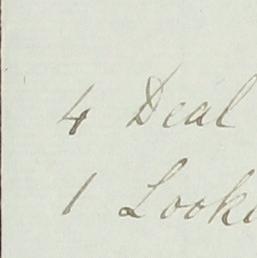 4 Deal
1 Looki